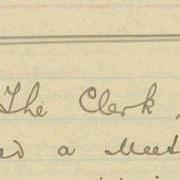 The Clerk
a Meet